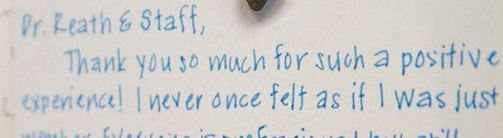 Dr. Reath & Staff,
Thank you so much for such a positive
experience! I never once felt as if I was just